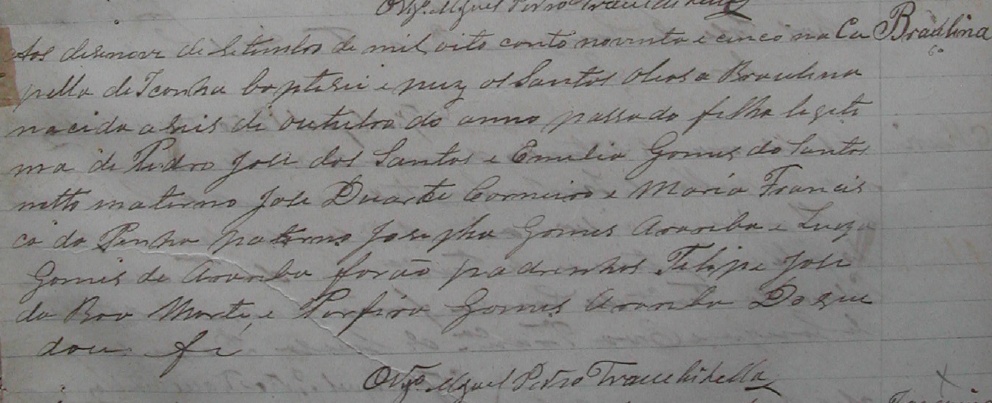 O Vigº Miguel Pedro Tracchidella
Aos desenove de Setembro de mil oito cento noventa e cinco na Ca Braulina
pella de Iconha baptisei e puz os Santos Oleos a Braulina
nacida a seis de outubro do anno passado filha legiti
ma de Pedro Jose dos Santos e Emilia Gomes do Santos
netto materno Jose Duarte Carneiro e Maria Francis
ca da Penha paterno Josepha Gomes Aranba e Luiza
Gomes de Aranba forão padrinhos Filipe Jose
da Boa Morte e Porfira Gomes Aranba Do que
dou fé
O Vigº Miguel Pedro Tracchidella